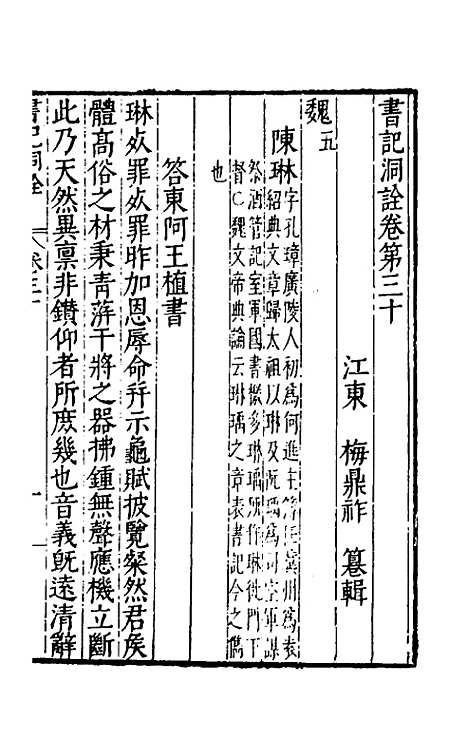 書記洞詮卷第三十
江東 梅鼎祚 纂輯
魏五
陳琳字孔璋廣陵人初爲何進主簿
冀州爲袁
紹典文章歸太祖以琳及阮瑀爲司空軍謀
祭酒管記室軍國書檄多琳瑀所作琳徙門下
督〇魏文帝典論云琳瑀之章表書記今之雋
也
答東阿王植書
琳死罪死罪昨加恩辱命并示龜賦披覽粲然君矦
體髙俗之材秉青蓱干將之器拂鍾無聲應機立斷
此乃天然異禀非鑽仰者所庶幾也音義既遠清辭
書記洞詮
卷三十
一